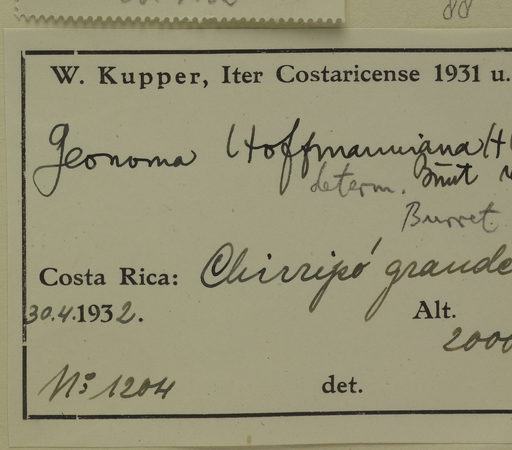 88
W. Kupper, Iter Costaricense 1931 u.
Geonoma Hoffmanniana H
determ.
Burret
Costa Rica: Chirripó grande
30.4.1932. Alt.
2000
No 1204 det.